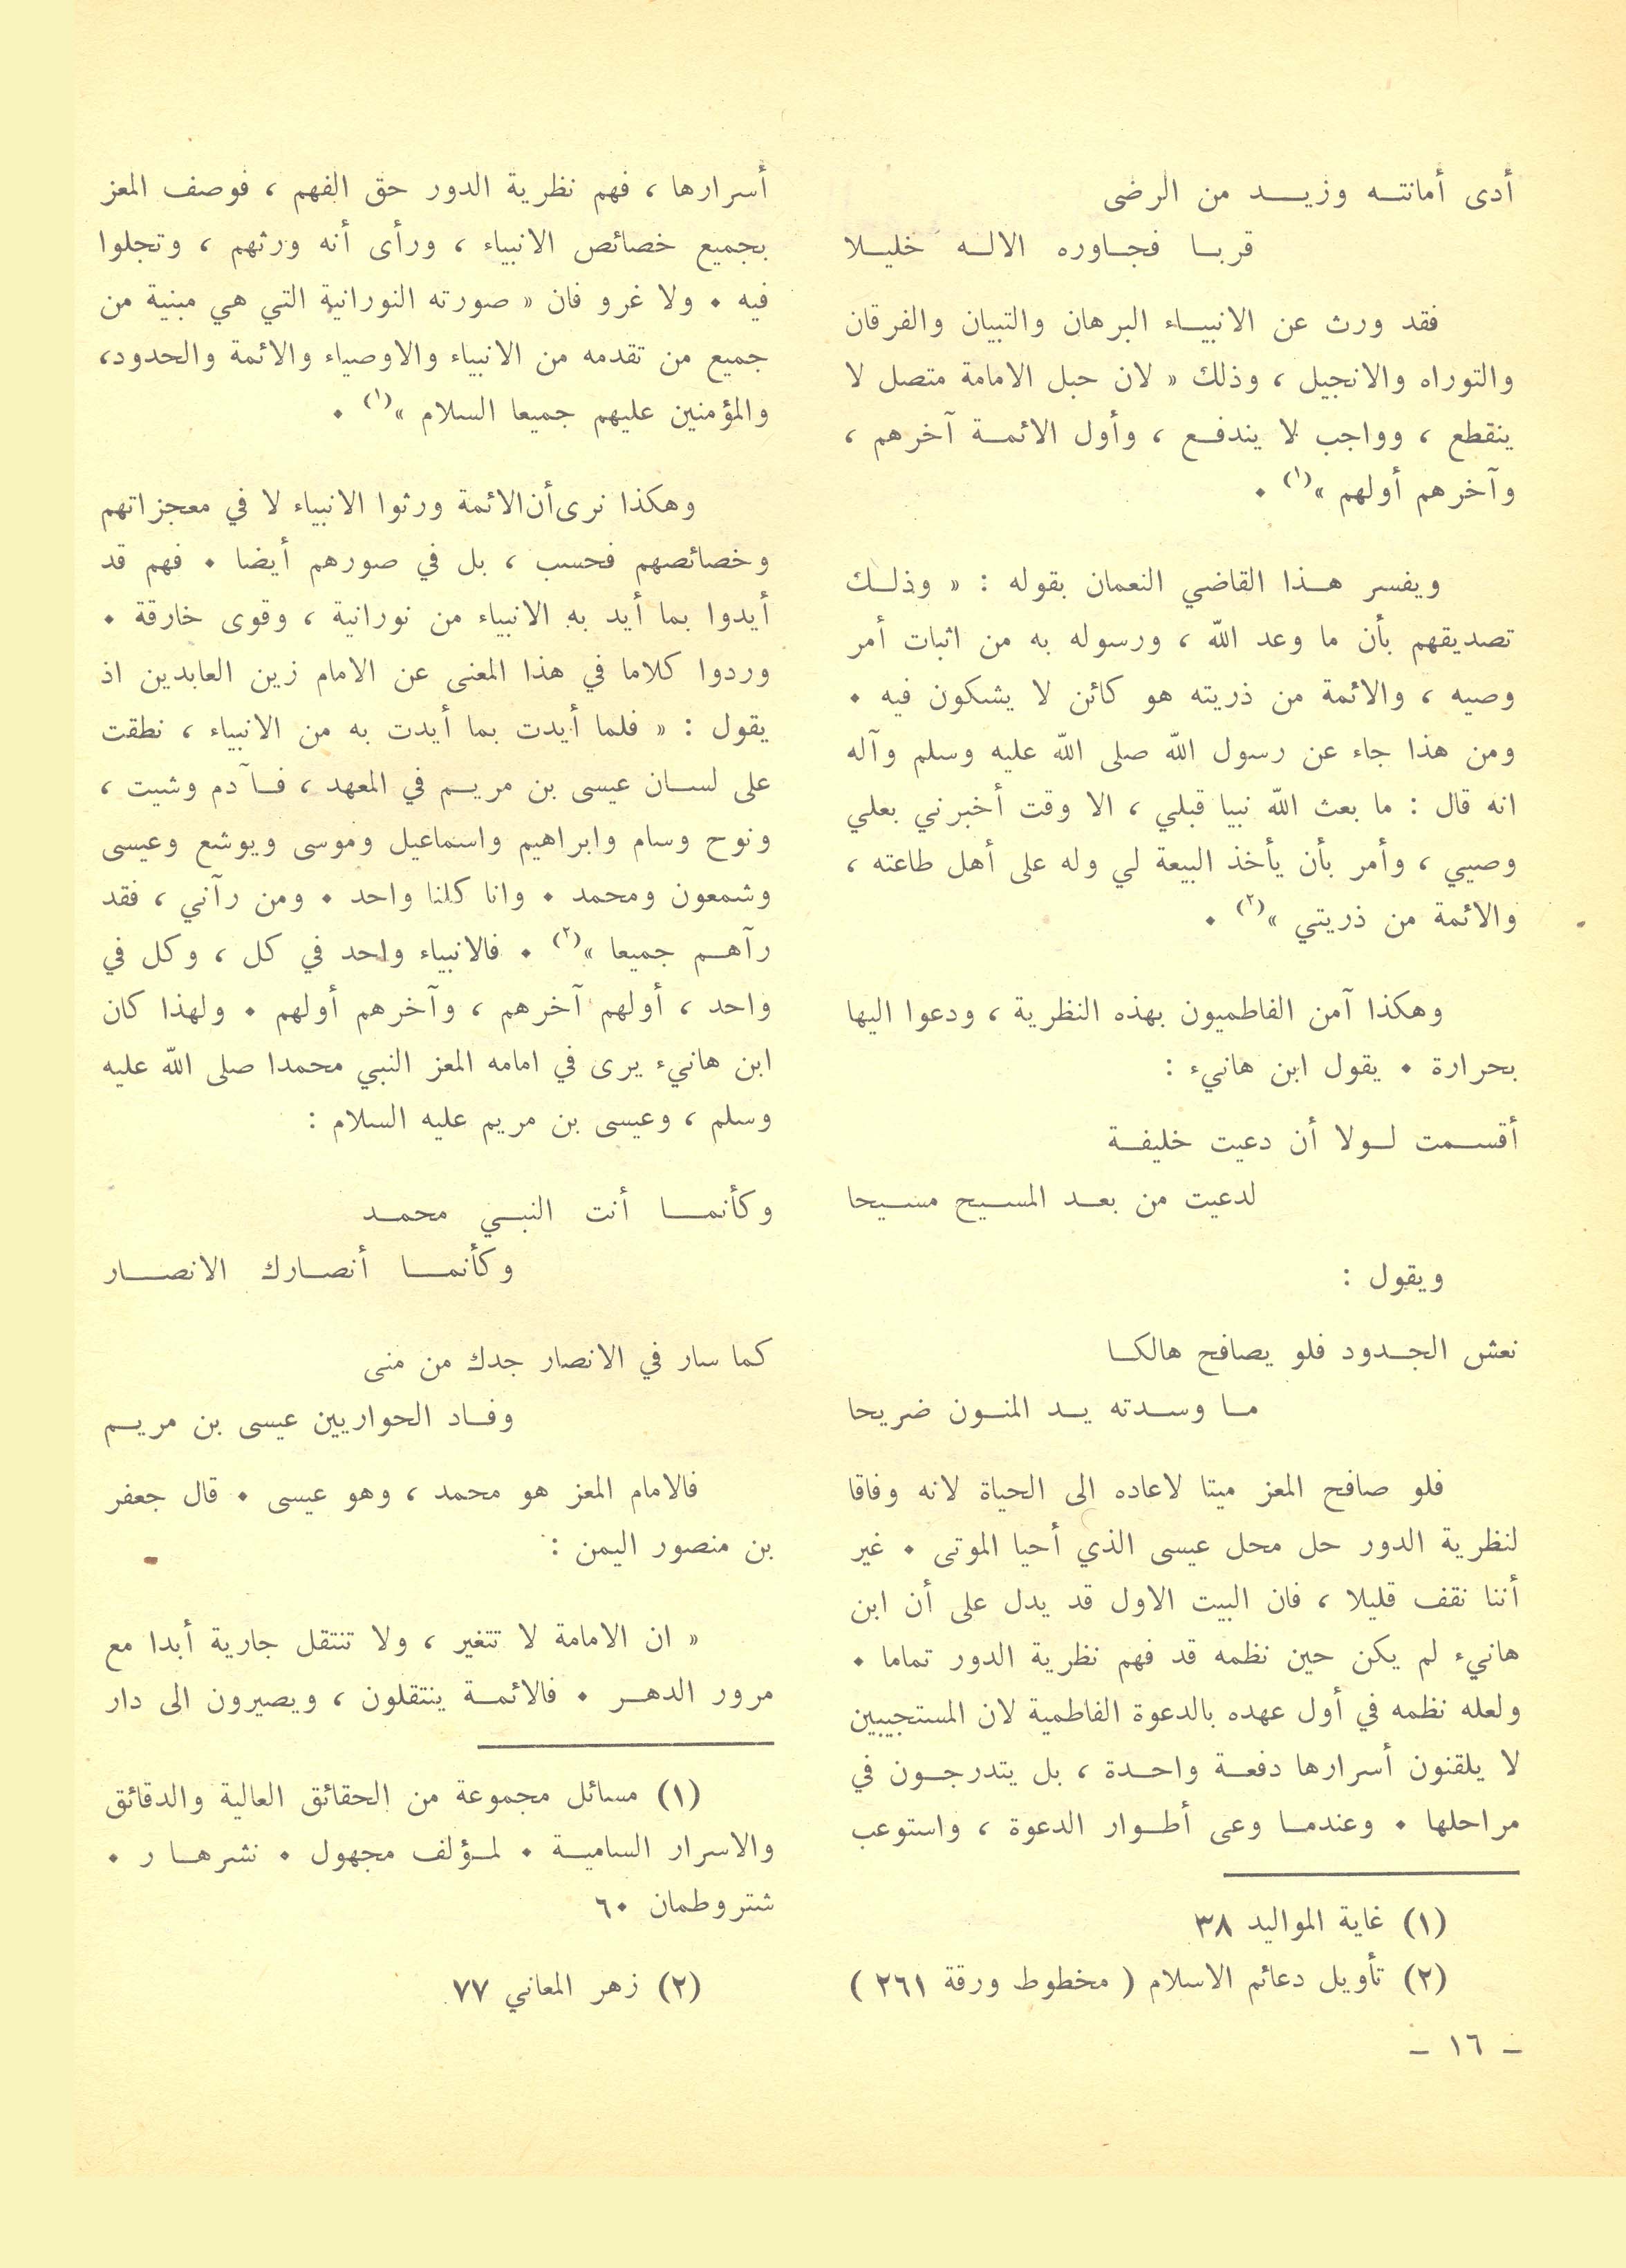 أدى أمانته وزيد من الرضى
قربا فجاوره الاله خليلا
فقد ورث عن الانبياء البرهان والتبيان والفرقان
والتوراه والانجيل ، وذلك « لان حبل الامامة متصل لا
ينقطع ، وواجب لا يندفع ، وأول الائمة آخرهم ،
وآخرهم أولهم »(١) ٠
ويفسر هذا القاضي النعمان بقوله : « وذلك
تصديقهم بأن ما وعد الله ، ورسوله به من اثبات أمر
وصيه ، والائمة من ذريته هو كائن لا يشكون فيه ٠
ومن هذا جاء عن رسول الله صلى الله عليه وسلم وآله
انه قال : ما بعث الله نبيا قبلي ، الا وقت أخبرني بعلي
وصيي ، وأمر بأن يأخذ البيعة لي وله على أهل طاعته ،
والائمة من ذريتي »(٢) ٠
وهكذا آمن الفاطميون بهذه النظرية ، ودعوا اليها
بحرارة ٠ يقول ابن هانيء :
أقسمت لولا أن دعيت خليفة
لدعيت من بعد المسيح مسيحا
ويقول :
نعش الجدود فلو يصافح هالكا
ما وسدته يد المنون ضريحا
فلو صافح المعز ميتا لاعاده الى الحياة لانه وفاقا
لنظرية الدور حل محل عيسى الذي أحيا الموتى ٠ غير
أننا نقف قليلا ، فان البيت الاول قد يدل على أن ابن
هانيء لم يكن حين نظمه قد فهم نظرية الدور تماما ٠
ولعله نظمه في أول عهده بالدعوة الفاطمية لان المستجيبين
لا يلقنون أسرارها دفعة واحدة ، بل يتدرجون في
مراحلها ٠ وعندما وعى أطوار الدعوة ، واستوعب
(١) غاية المواليد ٣٨
(٢) تأويل دعائم الاسلام ( مخطوط ورقة ٢٦١ )
– ١٦ –
أسرارها ، فهم نظرية الدور حق الفهم ، فوصف المعز
بجميع خصائص الانبياء ، ورأى أنه ورثهم ، وتجلوا
فيه ٠ ولا غرو فان « صورته النورانية التي هي مبنية من
جميع من تقدمه من الانبياء والاوصياء والائمة والحدود،
والمؤمنين عليهم جميعا السلام »(١) ٠
وهكذا نرى أن الائمة ورثوا الانبياء لا في معجزاتهم
وخصائصهم فحسب ، بل في صورهم أيضا ٠ فهم قد
أيدوا بما أيد به الانبياء من نورانية ، وقوى خارقة ٠
وردوا كلاما في هذا المعنى عن الامام زين العابدين اذ
يقول : « فلما أيدت بما أيدت به من الانبياء ، نطقت
على لسان عيسى بن مريم في المعهد ، فآدم وشيت ،
ونوح وسام وابراهيم واسماعيل وموسى ويوشع وعيسى
وشمعون ومحمد ٠ وانا كلنا واحد ٠ ومن رآني ، فقد
رآهم جميعا »(٢) ٠ فالانبياء واحد في كل ، وكل في
واحد ، أولهم آخرهم ، وآخرهم أولهم ٠ ولهذا كان
ابن هانيء يرى في امامه المعز النبي محمدا صلى الله عليه
وسلم ، وعيسى بن مريم عليه السلام :
وكأنما أنت النبي محمد
وكأنما أنصارك الانصار
كما سار في الانصار جدك من منى
وفاد الحواريين عيسى بن مريم
فالامام المعز هو محمد ، وهو عيسى ٠ قال جعفر
بن منصور اليمن :
« ان الامامة لا تتغير ، ولا تنتقل جارية أبدا مع
مرور الدهر ٠ فالائمة ينتقلون ، ويصيرون الى دار
(١) مسائل مجموعة من الحقائق العالية والدقائق
والاسرار السامية ٠ لمؤلف مجهول ٠ نشرها ر ٠
شتروطمان ٦٠
(٢) زهر المعاني ٧٧